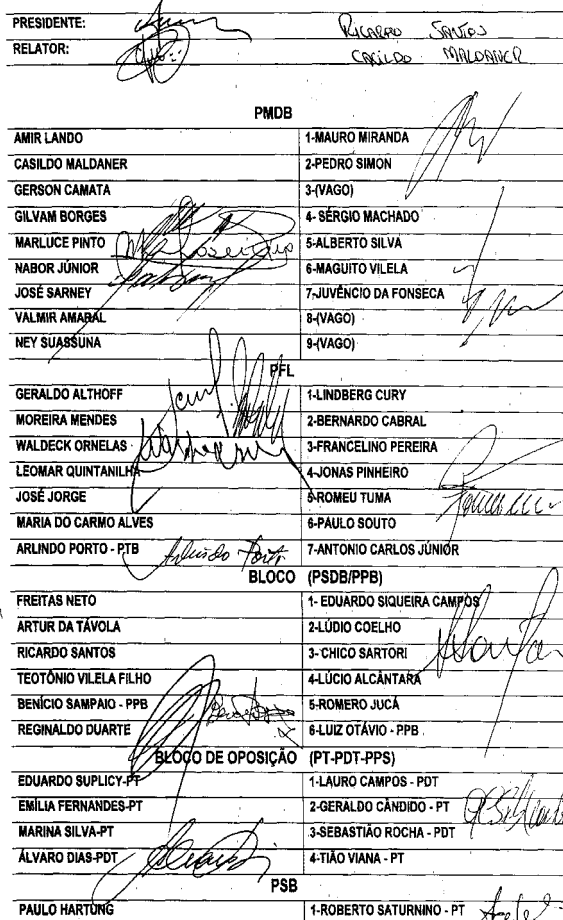 PRESIDENTE: RICARDO SANTOS
RELATOR: CASILDO MALDANER
PMDB
AMIR LANDO 1-MAURO MIRANDA
CASILDO MALDANER 2-PEDRO SIMON
GERSON CAMATA 3-(VAGO)
GILVAM BORGES 4- SÉRGIO MACHADO
MARLUCE PINTO 5-ALBERTO SILVA
NABOR JÚNIOR 6-MAGUITO VILELA
JOSÉ SARNEY 7-JUVÊNCIO DA FONSECA
VALMIR AMARAL 8-(VAGO)
NEY SUASSUNA 9-(VAGO)
PFL
GERALDO ALTHOFF 1-LINDBERG CURY
MOREIRA MENDES 2-BERNARDO CABRAL
WALDECK ORNELAS 3-FRANCELINO PEREIRA
LEOMAR QUINTANILHA 4-JONAS PINHEIRO
JOSÉ JORGE 5-ROMEU TUMA
MARIA DO CARMO ALVES 6-PAULO SOUTO
ARLINDO PORTO - PTB Arlindo Porto 7-ANTONIO CARLOS JÚNIOR
BLOCO (PSDB/PPB)
FREITAS NETO 1- EDUARDO SIQUEIRA CAMPOS
ARTUR DA TÁVOLA 2-LÚDIO COELHO
RICARDO SANTOS 3- CHICO SARTORI
TEOTÔNIO VILELA FILHO 4-LÚCIO ALCÂNTARA
BENÍCIO SAMPAIO - PPB 5-ROMERO JUCÁ
REGINALDO DUARTE 6-LUIZ OTÁVIO - PPB
BLOCO DE OPOSIÇÃO (PT-PDT-PPS)
EDUARDO SUPLICY-PT 1-LAURO CAMPOS - PDT
EMÍLIA FERNANDES-PT 2-GERALDO CÂNDIDO - PT
MARINA SILVA-PT 3-SEBASTIÃO ROCHA - PDT
ÁLVARO DIAS-PDT 4-TIÃO VIANA - PT
PSB
PAULO HARTUNG 1-ROBERTO SATURNINO - PT